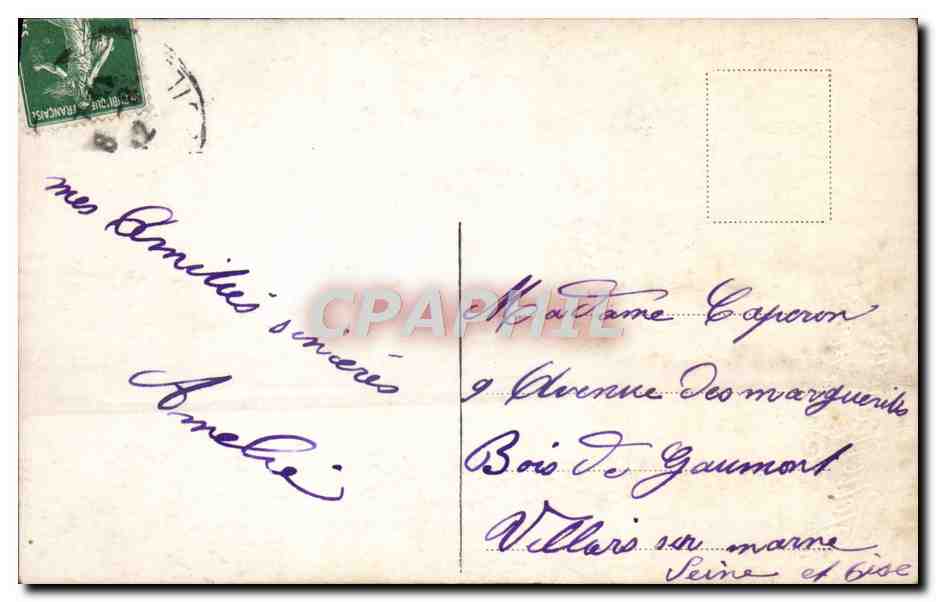 RÉPUBLIQUE FRANÇAISE
mes Amitiés sincères
Amelie
CPAPHIL
Madame Caperon
9 Avenue des marguerites
Bois de Gaumont
Villiers sur marne
Seine et Oise